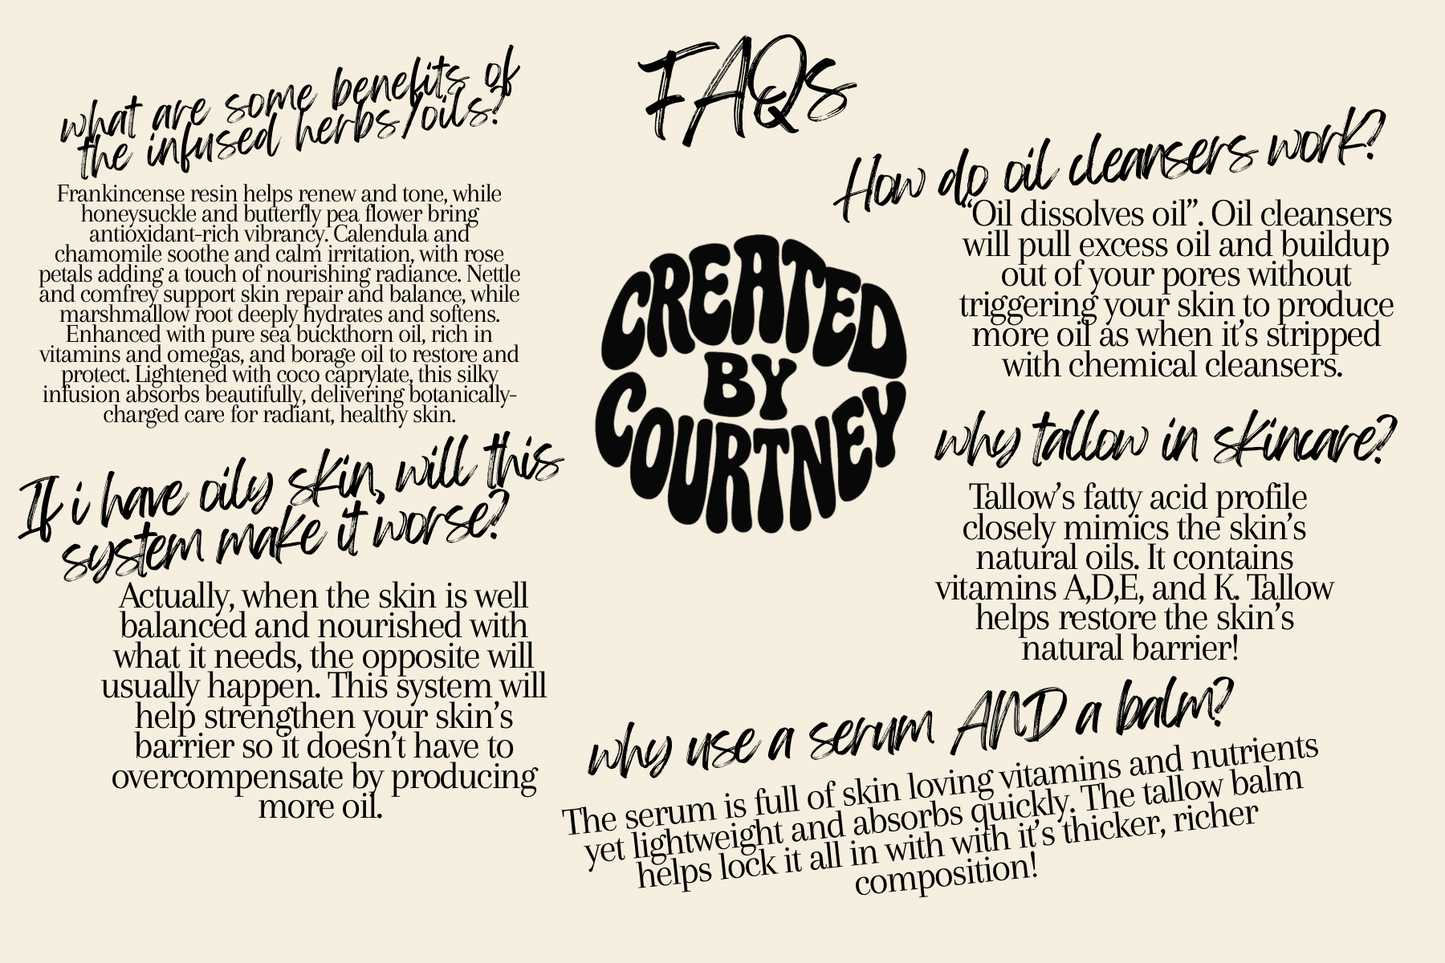 FAQs
what are some benefits of
the infused herbs/oils?
Frankincense resin helps renew and tone, while
honeysuckle and butterfly pea flower bring
antioxidant-rich vibrancy. Calendula and
chamomile soothe and calm irritation, with rose
petals adding a touch of nourishing radiance. Nettle
and comfrey support skin repair and balance, while
marshmallow root deeply hydrates and softens.
Enhanced with pure sea buckthorn oil, rich in
vitamins and omegas, and borage oil to restore and
protect. Lightened with coco caprylate, this silky
infusion absorbs beautifully, delivering botanically-
charged care for radiant, healthy skin.
If i have oily skin, will this
system make it worse?
Actually, when the skin is well
balanced and nourished with
what it needs, the opposite will
usually happen. This system will
help strengthen your skin's
barrier so it doesn't have to
overcompensate by producing
more oil.
CREATED
BY
COURTNEY
How do oil cleansers work?
“Oil dissolves oil”. Oil cleansers
will pull excess oil and buildup
out of your pores without
triggering your skin to produce
more oil as when it's stripped
with chemical cleansers.
why tallow in skincare?
Tallow's fatty acid profile
closely mimics the skin's
natural oils. It contains
vitamins A,D,E, and K. Tallow
helps restore the skin's
natural barrier!
why use a serum AND a balm?
The serum is full of skin loving vitamins and nutrients
yet lightweight and absorbs quickly. The tallow balm
helps lock it all in with with it's thicker, richer
composition!